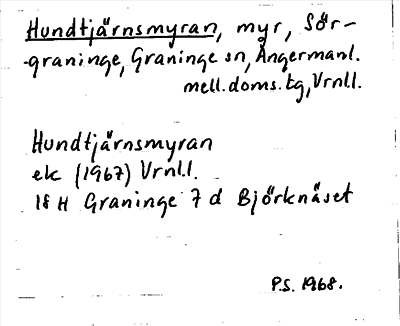 Hundtjärnsmyran, myr, Sör-
-graninge, Graninge sn, Ångermanl.
mell. doms. tg, Vrnl.l.
Hundtjärnsmyran
ek (1967) Vrnl.l.
18 H Graninge 7 d Björknäset
P.S. 1968.